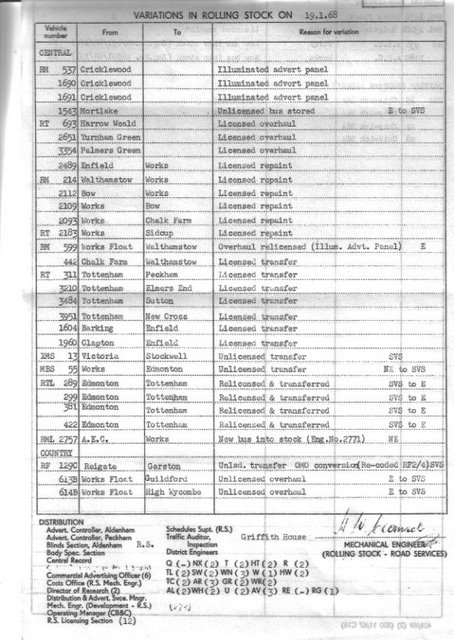 VARIATIONS IN ROLLING STOCK ON 19.1.68
Vehicle number From To Reason for variation
CENTRAL
RM 537 Cricklewood Illuminated advert panel
1690 Cricklewood Illuminated advert panel
1691 Cricklewood Illuminated advert panel
1543 Mortlake Unlicensed bus stored E to SVS
RT 693 Harrow Weald Licensed overhaul
2651 Turnham Green Licensed overhaul
3354 Palmers Green Licensed overhaul
2489 Enfield Works Licensed repaint
RM 214 Walthamstow Works Licensed repaint
2112 Bow Works Licensed repaint
2109 Works Bow Licensed repaint
2093 Works Chalk Farm Licensed repaint
RT 2183 Works Sidcup Licensed repaint
RM 599 Works Float Walthamstow Overhaul relicensed (Illum. Advt. Panel) E
442 Chalk Farm Walthamstow Licensed transfer
RT 311 Tottenham Peckham Licensed transfer
3210 Tottenham Elmers End Licensed transfer
3484 Tottenham Sutton Licensed transfer
3951 Tottenham New Cross Licensed transfer
1604 Barking Enfield Licensed transfer
1960 Clapton Enfield Licensed transfer
XMS 13 Victoria Stockwell Unlicensed transfer SVS
MBS 55 Works Edmonton Unlicensed transfer NE to SVS
RTL 289 Edmonton Tottenham Relicensed & transferred SVS to E
299 Edmonton Tottenham Relicensed & transferred SVS to E
381 Edmonton Tottenham Relicensed & transferred SVS to E
422 Edmonton Tottenham Relicensed & transferred SVS to E
RML 2757 A.E.C. Works New bus into stock (Eng.No.2771) NE
COUNTRY
RF 129C Reigate Garston Unlsd. transfer OMO conversion(Re-coded RF2/4)SVS
613B Works Float Guildford Unlicensed overhaul E to SVS
614B Works Float High Wycombe Unlicensed overhaul E to SVS
DISTRIBUTION
Advert. Controller, Aldenham
Advert. Controller, Peckham
Blinds Section, Aldenham R.S.
Body Spec. Section
Central Record
Commercial Advertising Officer (6)
Costs Office (R.S. Mech. Engr.)
Director of Research (2)
Distribution & Advert. Svce. Mngr.
Mech. Engr. (Development - R.S.)
Operating Manager (CB&C)
R.S. Licensing Section (12)
Schedules Supt. (R.S.)
Traffic Auditor, Griffith House
Inspection
District Engineers
Q (-) NX(2) T (2) HT(2) R (2)
TL(2) SW(2) WN(3) W (1) HW(2)
TC(2) AR(3) GR(2) WR(2)
AL(2) WH(2) U (2) AV(3) RE (-) RG(1)
MECHANICAL ENGINEER
(ROLLING STOCK - ROAD SERVICES)